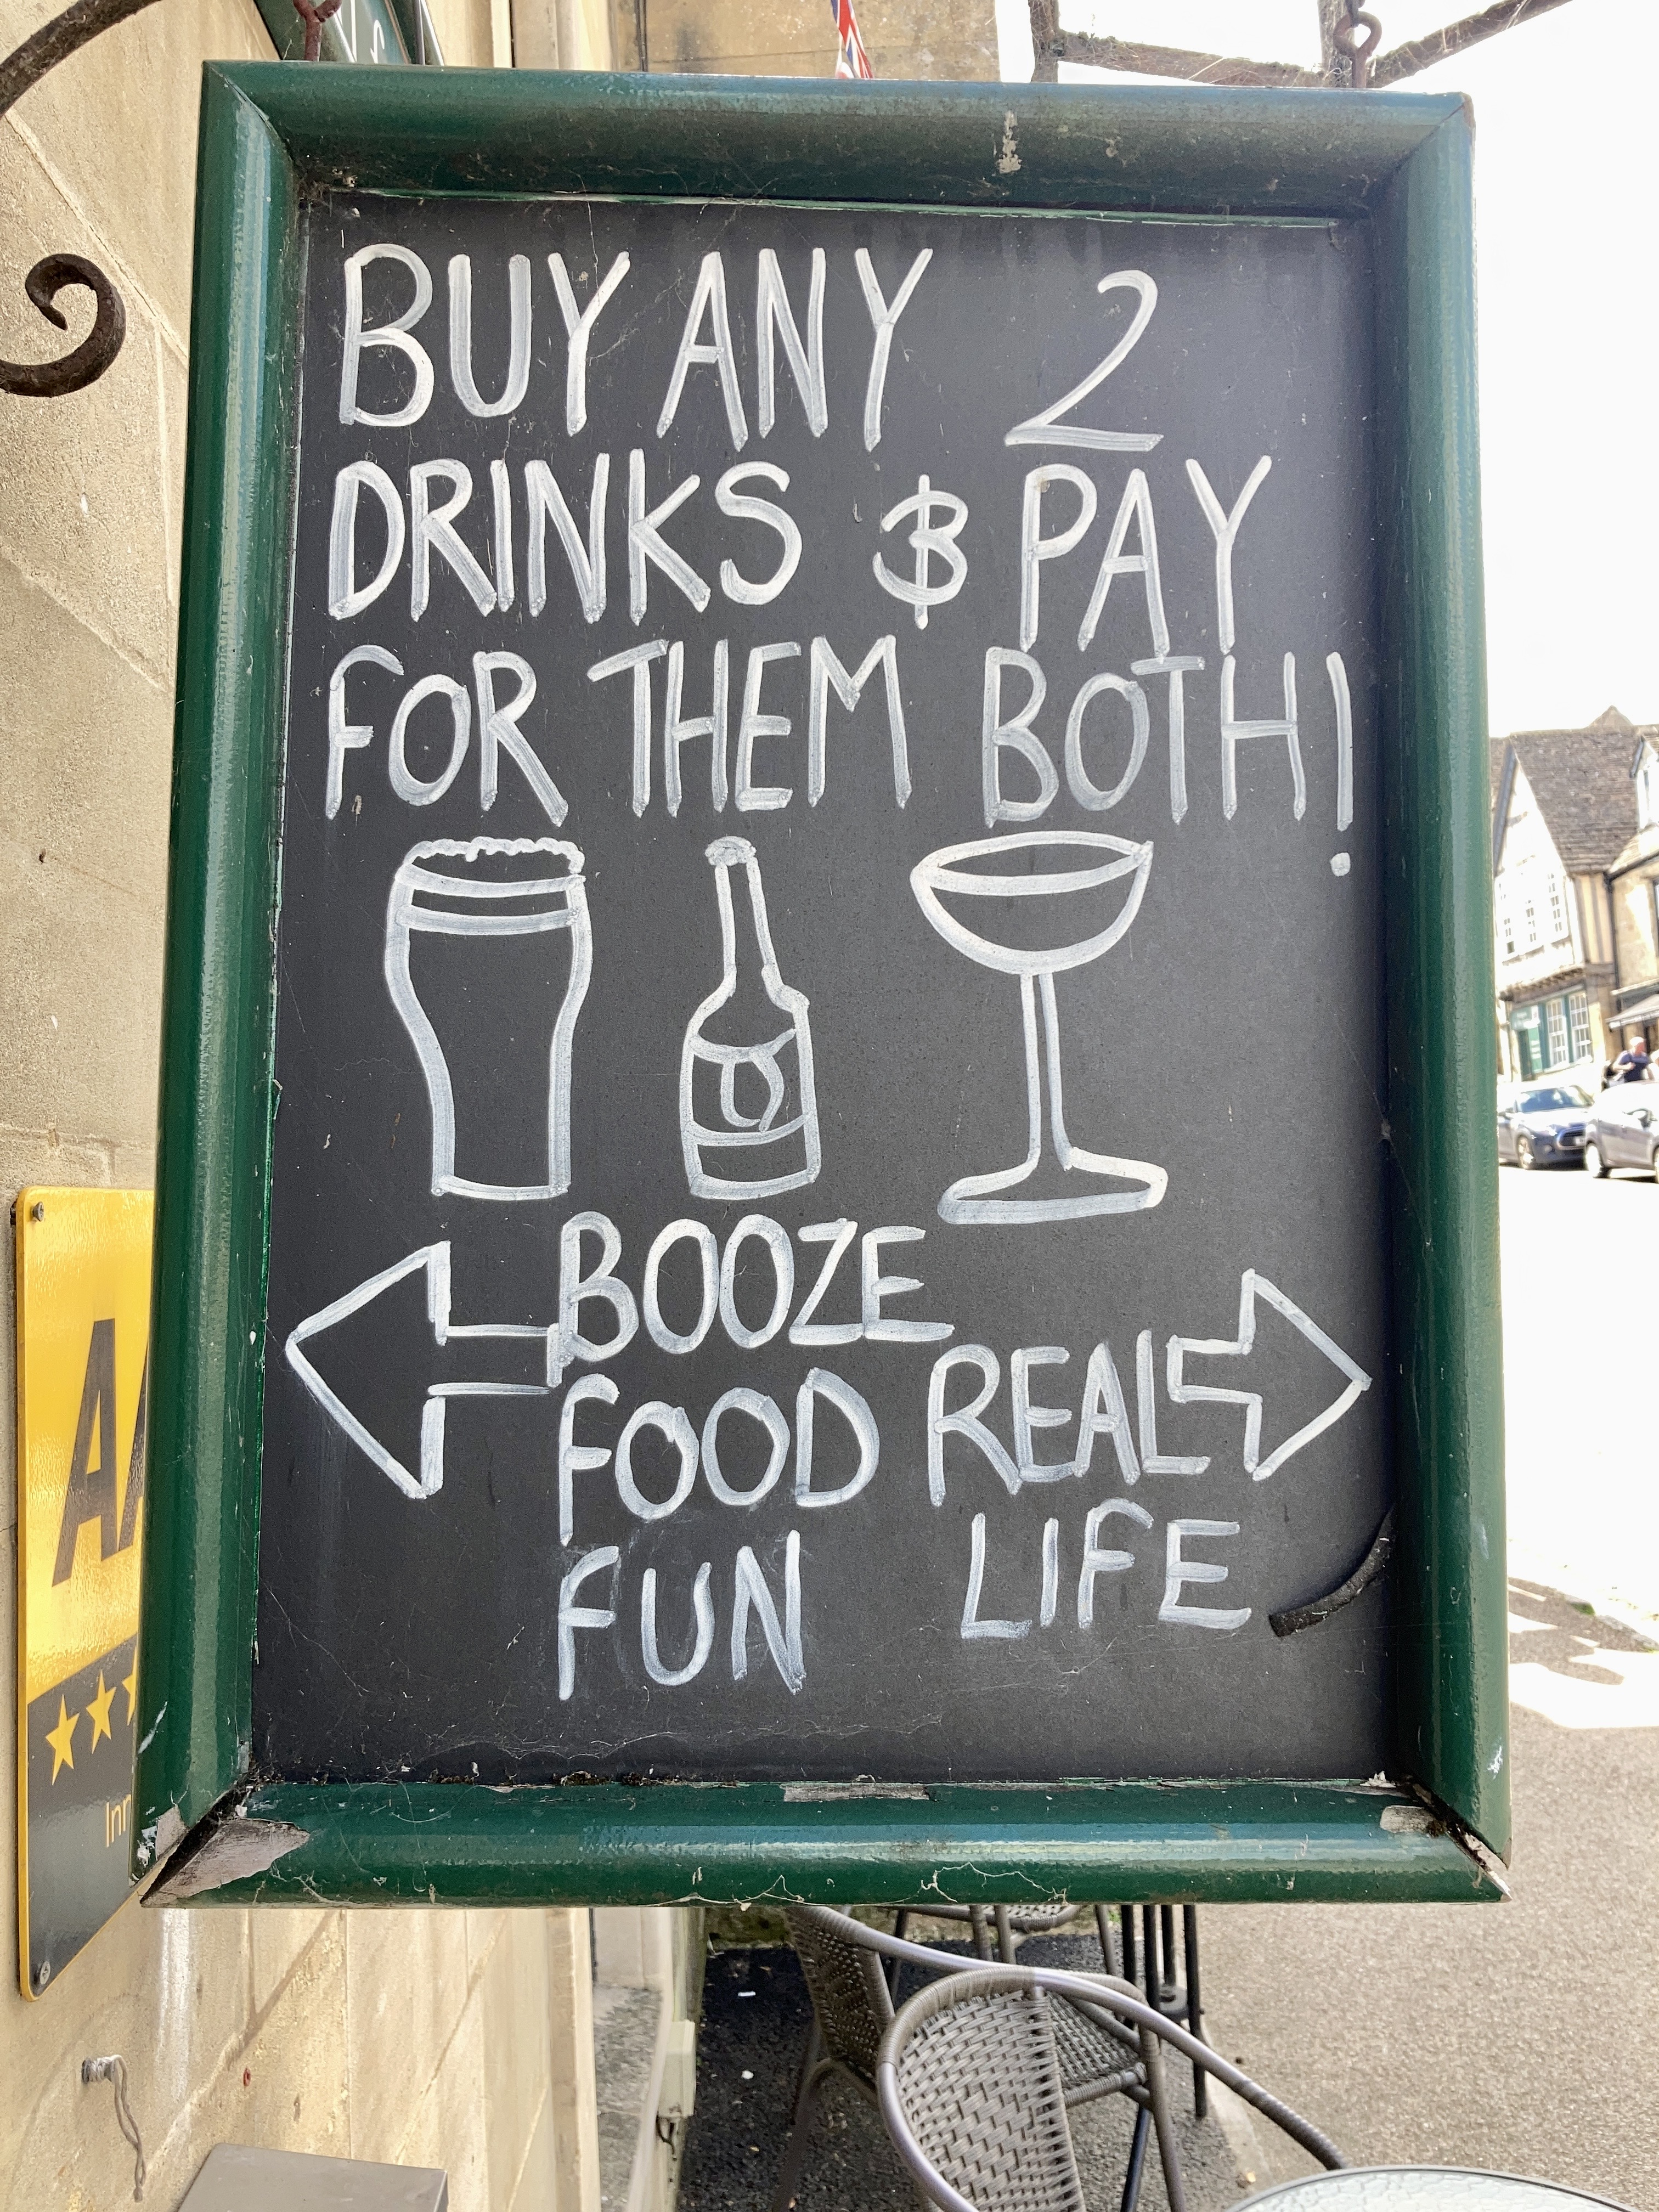 BUY ANY 2
DRINKS & PAY
FOR THEM BOTH!
BOOZE
FOOD
FUN
REAL
LIFE
Inn